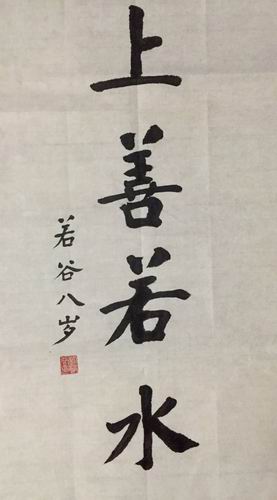 上善若水
若谷八岁